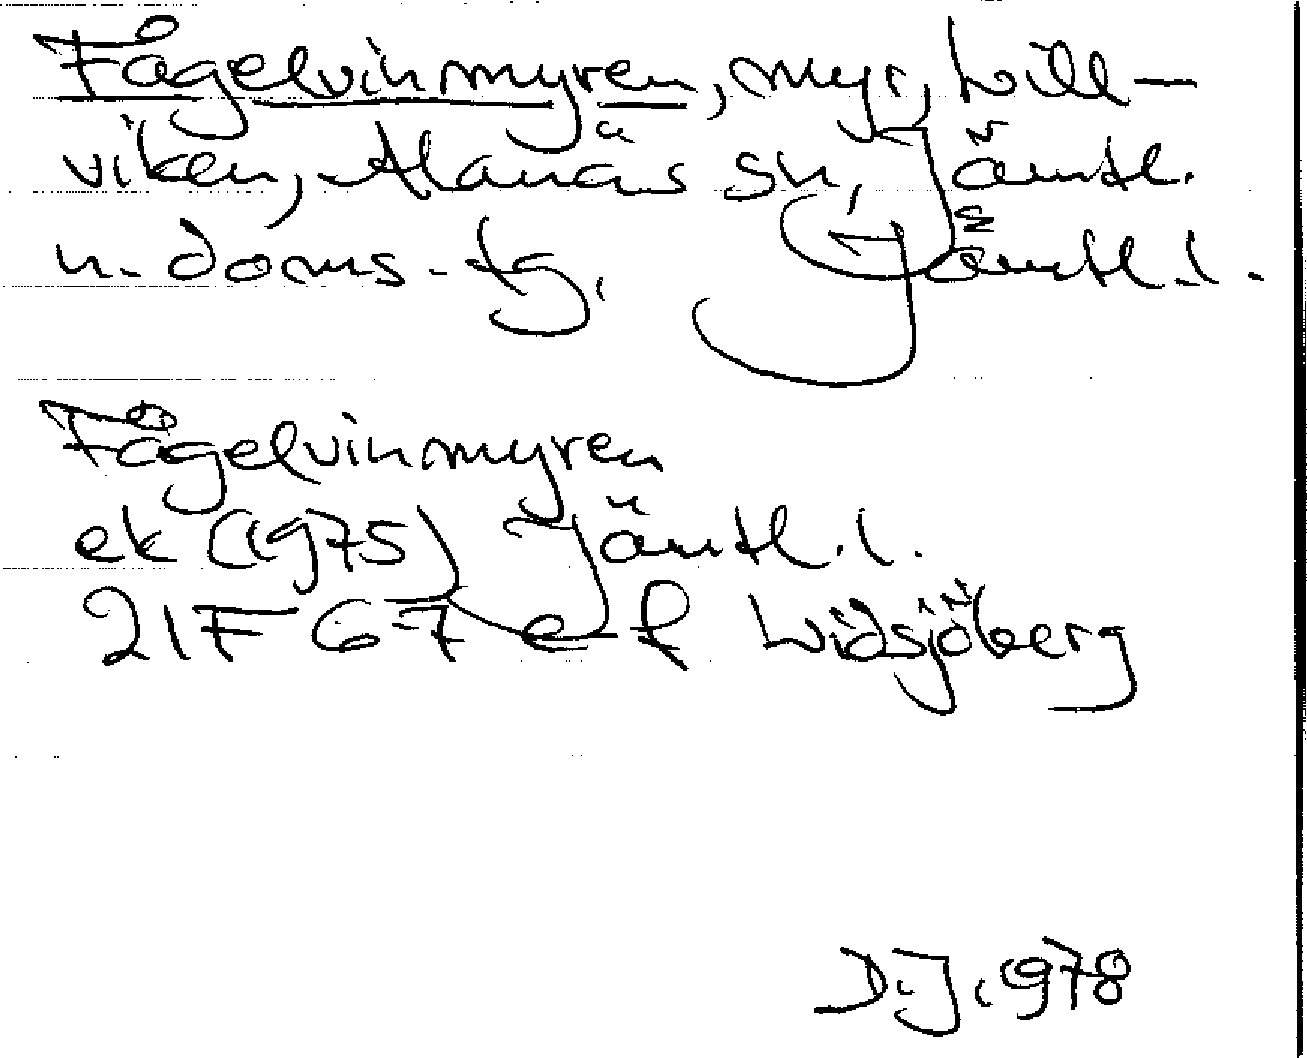 Fågelvinmyren, myr, Lill-
viken, Alanäs sn, Jämtl.
n. doms.-tg, Jämtl. l.
Fågelvinmyren
ek (1975) Jämtl. l.
21F 6-7 e-f Lidsjöberg
D.J. 1978